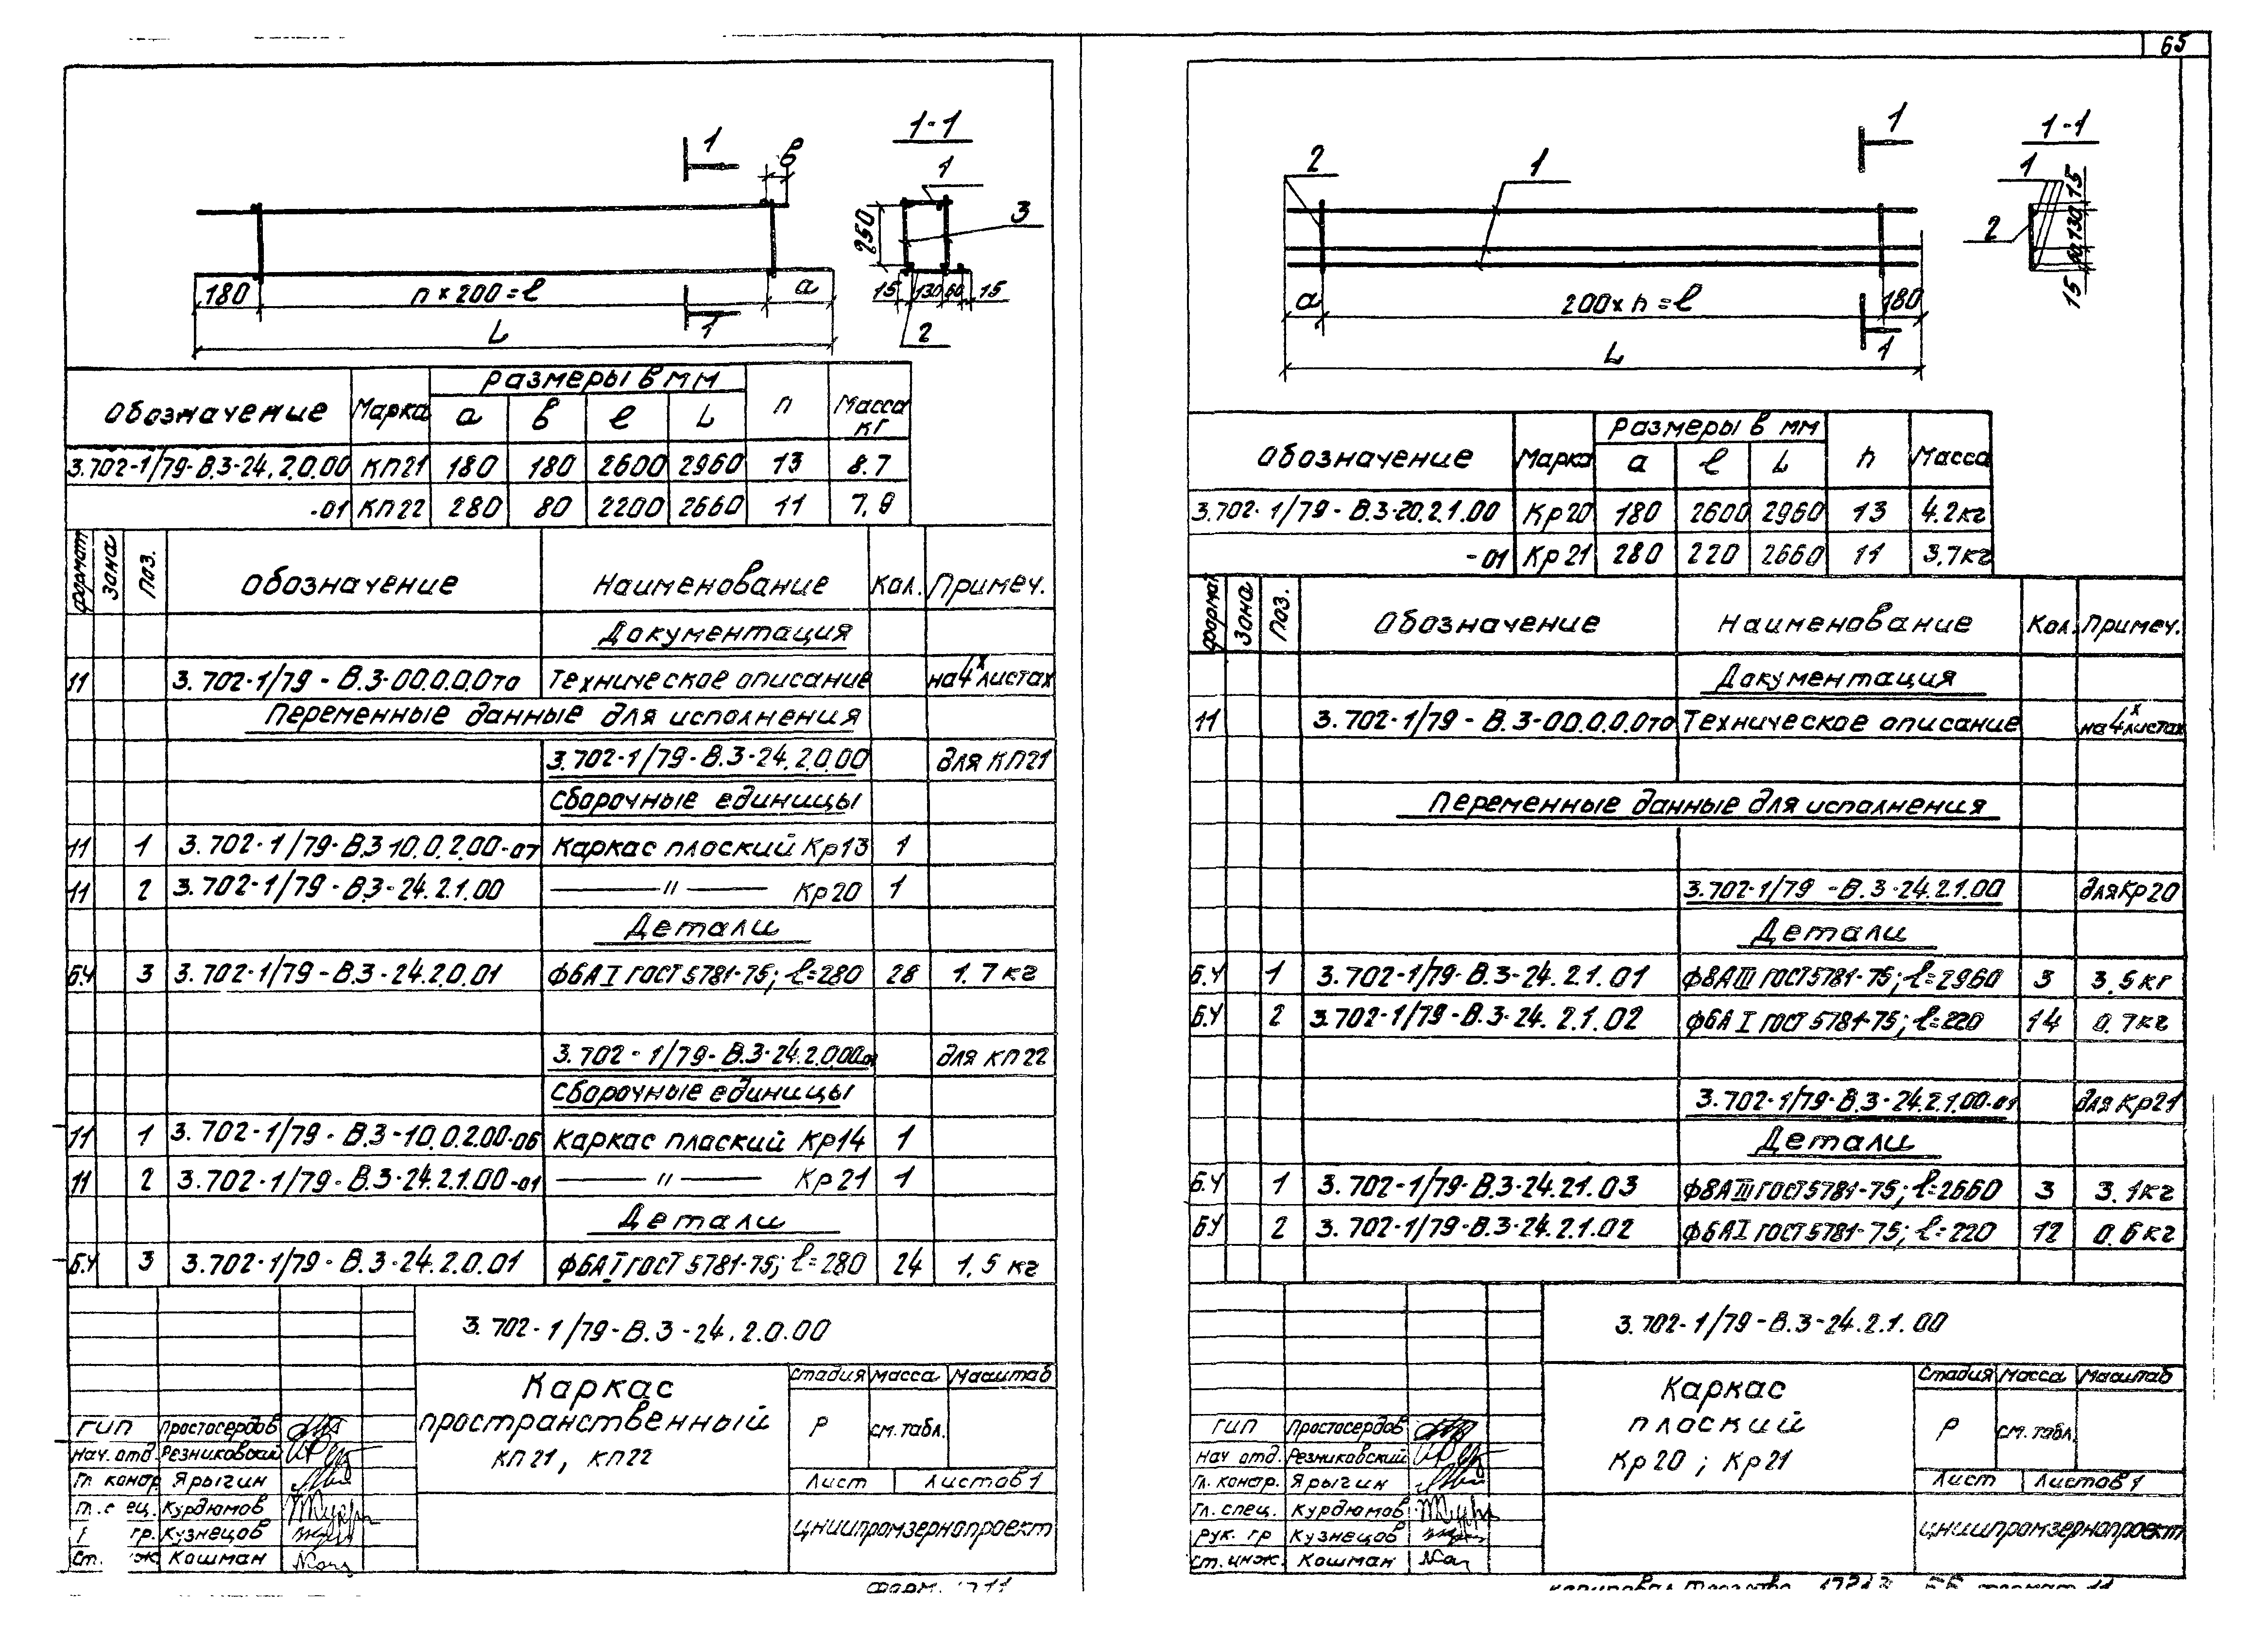 65
1
в
1-1
1
3
250
180
n×200=ℓ
a
1
15 130 60 15
2
L
Обозначение Марка Размеры в мм n Масса кг
a в ℓ L
3.702-1/79-В.3-24.2.0.00 КП21 180 180 2600 2960 13 8.7
-01 КП22 280 80 2200 2660 11 7,9
Формат Зона Поз. Обозначение Наименование Кол. Примеч.
Документация
11 3.702-1/79-В.3-00.0.0.0то Техническое описание на 4х листах
Переменные данные для исполнения
3.702-1/79-В.3-24.2.0.00 для КП21
Сборочные единицы
11 1 3.702-1/79-В.3-10.0.2.00-07 Каркас плоский Кр13 1
11 2 3.702-1/79-В.3-24.2.1.00 —— " —— Кр20 1
Детали
Б.Ч 3 3.702-1/79-В.3-24.2.0.01 Ф6АI ГОСТ 5781-75; ℓ=280 28 1.7 кг
3.702-1/79-В.3-24.2.0.00-01 для КП22
Сборочные единицы
11 1 3.702-1/79-В.3-10.0.2.00-06 Каркас плоский Кр14 1
11 2 3.702-1/79-В.3-24.2.1.00-01 —— " —— Кр21 1
Детали
Б.Ч 3 3.702-1/79-В.3-24.2.0.01 Ф6АI ГОСТ 5781-75; ℓ=280 24 1,5 кг
3.702-1/79-В.3-24.2.0.00
Каркас
пространственный
КП21, КП22
Стадия Масса Масштаб
Р см. табл.
Лист Листов 1
ЦНИИпромзернопроект
ГИП Простосердов
Нач. отд. Резниковский
Гл. констр. Ярыгин
ец. Курдюмов
гр. Кузнецов
Ст. Кошман
1
1-1
2
1
1
2
15
130
60
15
a
200×n=ℓ
180
1
L
Обозначение Марка Размеры в мм n Масса
a ℓ L
3.702-1/79-В.3-20.2.1.00 Кр20 180 2600 2960 13 4.2кг
-01 Кр21 280 220 2660 11 3,7кг
Формат Зона Поз. Обозначение Наименование Кол. Примеч.
Документация
11 3.702-1/79-В.3-00.0.0.0то Техническое описание на 4х листах
Переменные данные для исполнения
3.702-1/79-В.3-24.2.1.00 для Кр20
Детали
Б.Ч 1 3.702-1/79-В.3-24.2.1.01 Ф8АIII ГОСТ 5781-75; ℓ=2960 3 3,5 кг
Б.Ч 2 3.702-1/79-В.3-24.2.1.02 Ф6АI ГОСТ 5781-75; ℓ=220 14 0.7кг
3.702-1/79-В.3-24.2.1.00-01 для Кр21
Детали
Б.Ч 1 3.702-1/79-В.3-24.21.03 Ф8АIII ГОСТ 5781-75; ℓ=2660 3 3.1кг
Б.Ч 2 3.702-1/79-В.3-24.2.1.02 Ф6АI ГОСТ 5781-75; ℓ=220 12 0.6кг
3.702-1/79-В.3-24.2.1.00
Каркас
плоский
Кр20; Кр21
Стадия Масса Масштаб
Р см. табл.
Лист Листов 1
ЦНИИпромзернопроект
ГИП Простосердов
Нач отд. Резниковский
Гл. констр. Ярыгин
Гл. спец. Курдюмов
рук. гр Кузнецов
Ст. инж. Кошман